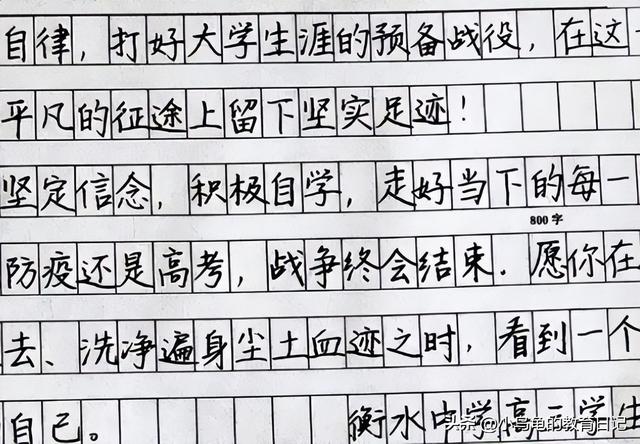 自律，打好大学生涯的预备战役，在这一
平凡的征途上留下坚实足迹！
坚定信念，积极自学，走好当下的每一
800字
防疫还是高考，战争终会结束．愿你在
去、洗净遍身尘土血迹之时，看到一个
自己。 衡水中学高三学生
头条@小乌龟的教育日记